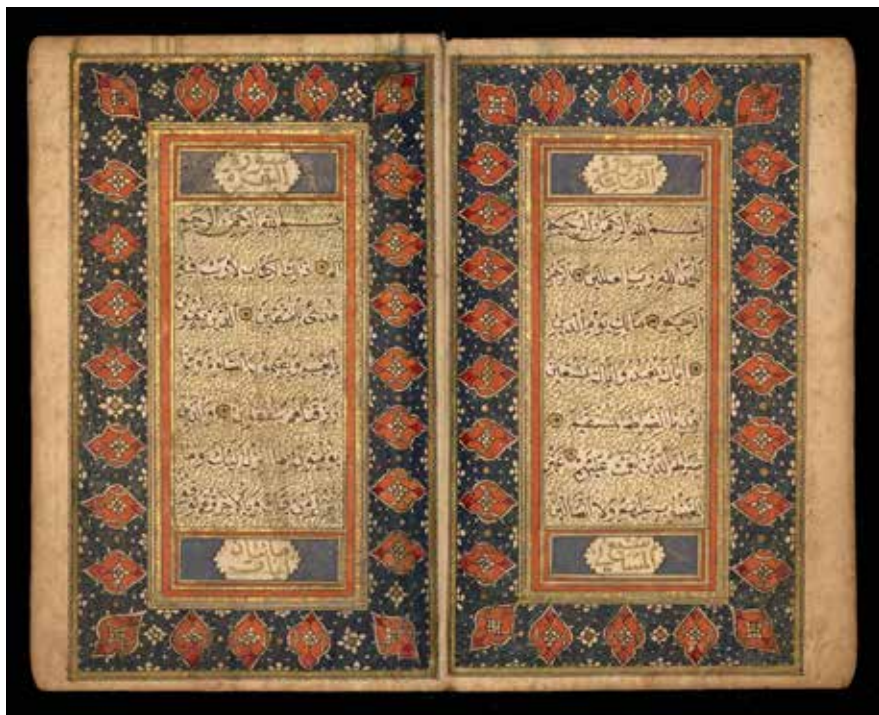 سورة
الفاتحة
بسم الله الرحمن الرحيم
الحمد لله رب العلمين الرحمن
الرحيم مالك يوم الدين
اياك نعبد واياك نستعين
اهدنا الصراط المستقيم
صراط الذين انعمت عليهم غير
المغضوب عليهم ولا الضالين
سورة
البقرة
بسم الله الرحمن الرحيم
الم ذلك الكتاب لا ريب فيه
هدى للمتقين الذين يؤمنون
بالغيب ويقيمون الصلوة ومما
رزقناهم ينفقون والذين
يؤمنون بما انزل اليك وما
انزل من قبلك وبالاخرة هم
مائتان